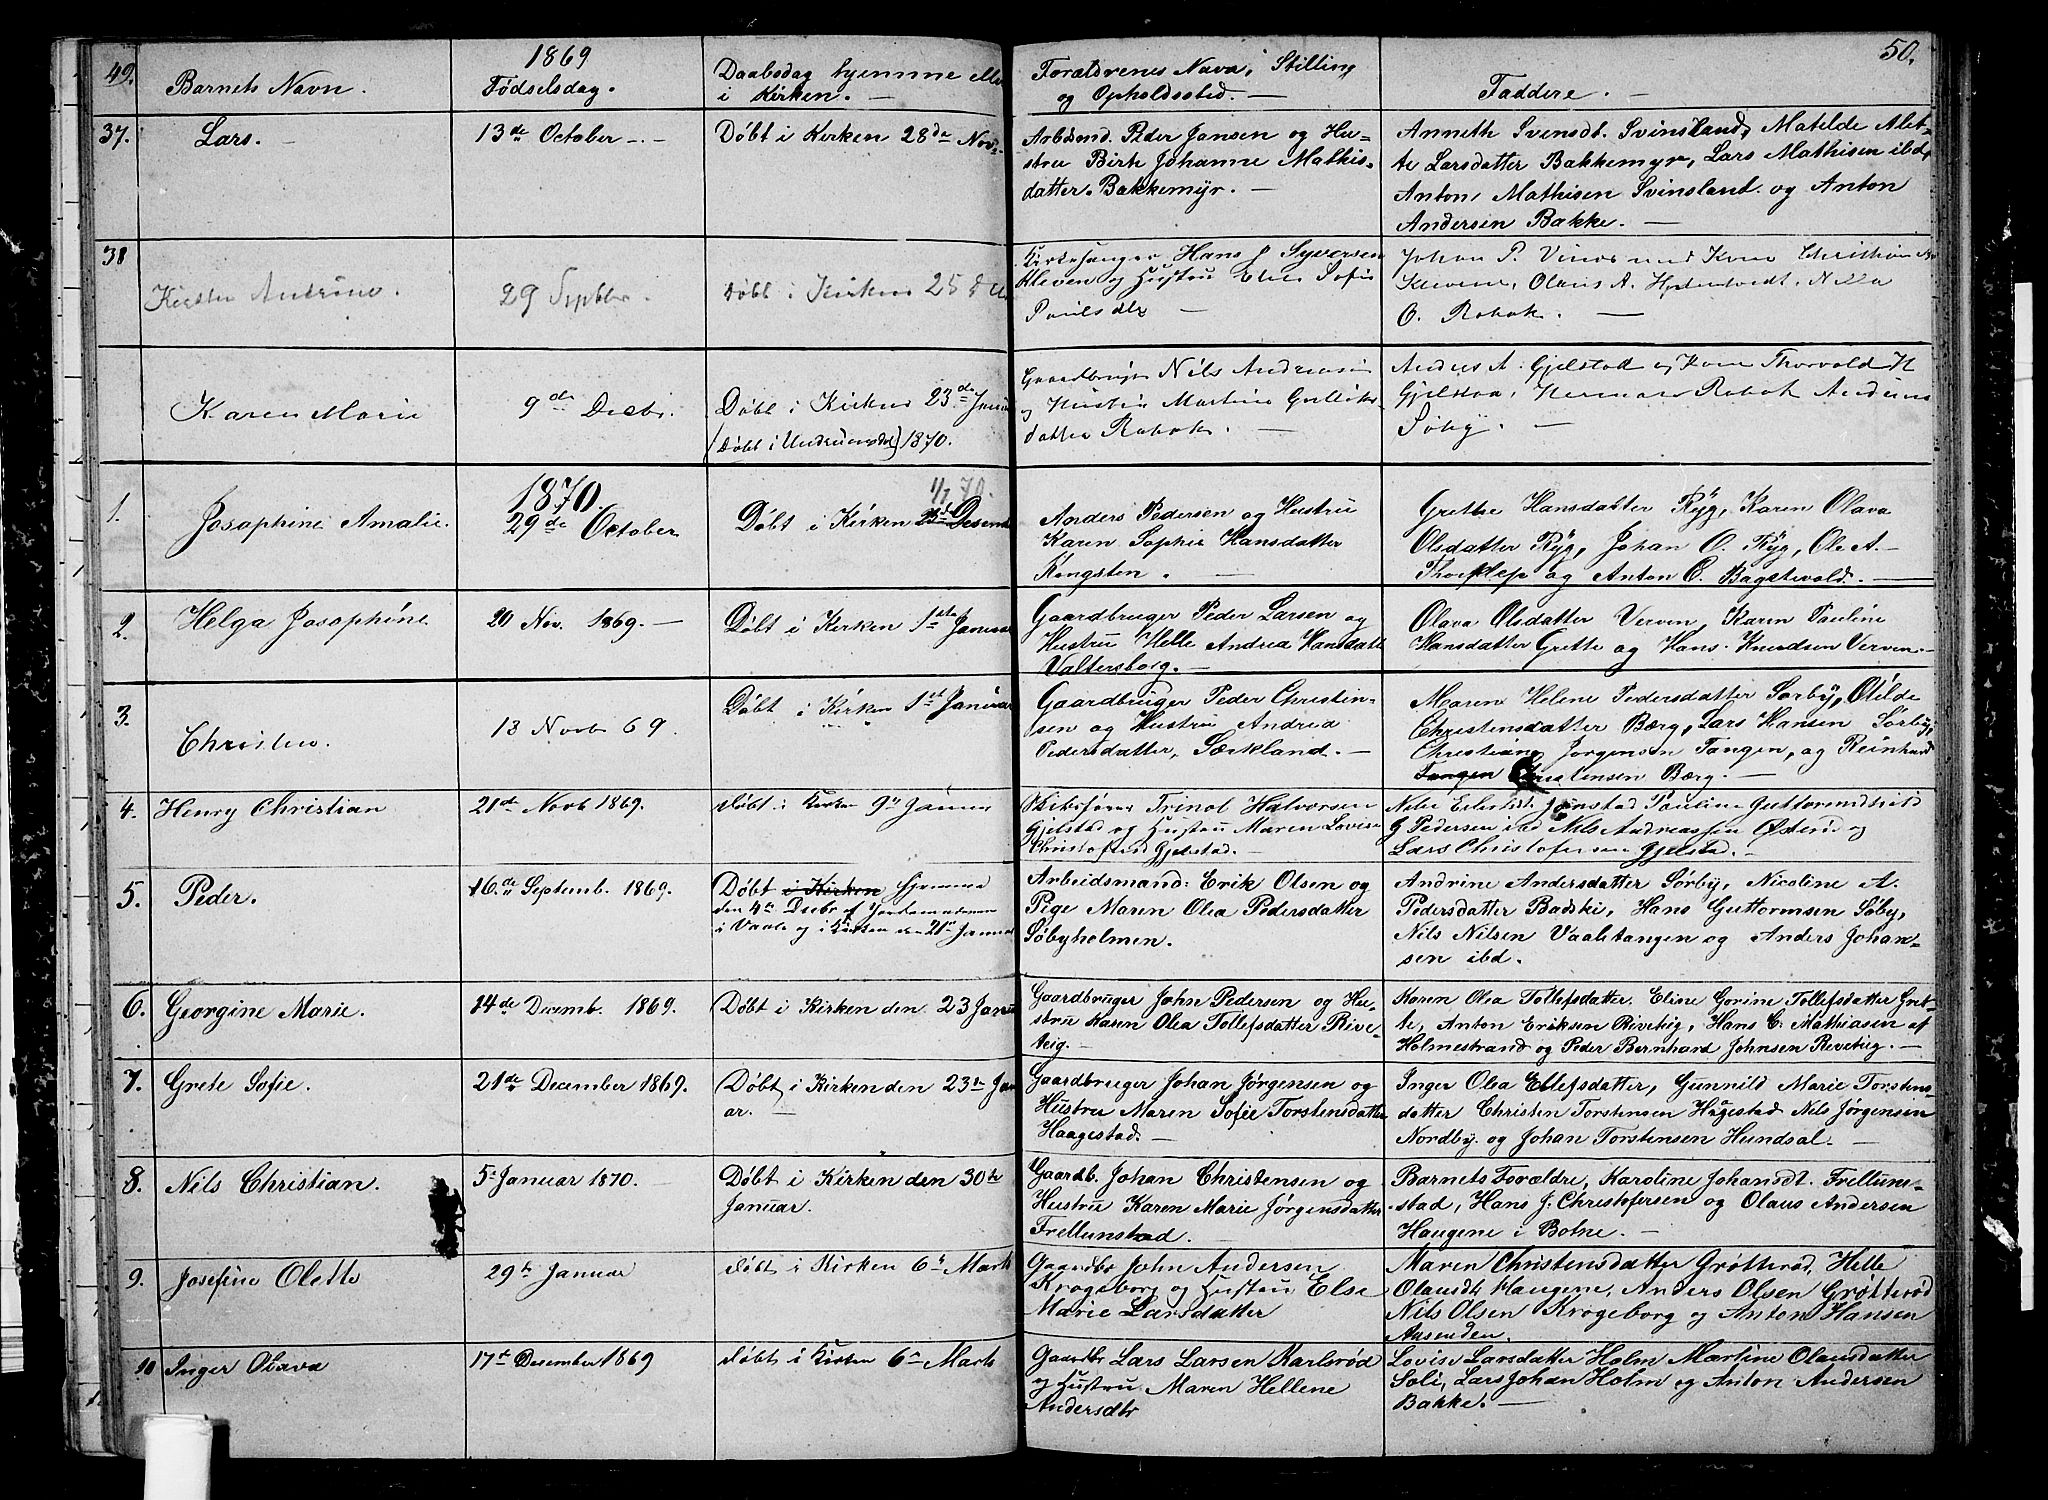 49.
1869
50.
Barnets Navn.
Fødselsdag.
Daabsdag hjemme eller
i Kirken. —
Forældrenes Navn, Stilling
og Opholdssted. —
Faddere. —
37.
Lars. —
13de October —.—
Døbt i Kirken 28de Novr
Arbdsmd. Peder Jansen og Hu-
stru Birte Johanne Mathis-
datter. Bakkemyr. —
Anneth Svensdt. Svinsland, Matilde Alet-
te Larsdatter Bakkemyr, Lars Mathisen ibd,
Anton Mathisen Svinsland og Anton
Andersen Bakke. —
38
Kirsten Andrine.
29 Septbr.
Døbt i Kirken 25 d
Kirkesanger Hans J Syversen
Kleven og Hustru Elen Sofie
Poulsdtr —
Johan P. Vinos med Kone Christine
Klevene, Olaus A. , Nils
O. Robok. —
Karen Marie
9de Decbr.
Døbt i Kirken 23de Janua
(Døbt i Undrumsdal) 1870.
Gaardbruger Nils Andreasen
og Hustru Martine Gulliks-
datter Robok. —
Anders A. Gjelstad og Kone Thorvald H
Gjelstad, Herman Robok Andrine
Söby. —
1.
Josephine Amalie.
1870.
29de October
1/1 70.
Døbt i Kirken Desem
Anders Pedersen og Hustru
Karen Sophie Hansdatter
Kongsten. —
Grethe Hansdatter Ryg, Karen Olava
Olsdatter Ryg, Johan O. Ryg, Ole A.
og Anton C. Bagstevold. —
2.
Helga Josephine
20 Nov. 1869. —
Døbt i Kirken 1ste Januar
Gaardbruger Peder Larsen og
Hustru Helle Andrea Hansdatt
Valtersborg. —
Olava Olsdatter Verven, Karen Pauline
Hansdatter Grette og Hans Knudsen Verven. —
3.
Christen.
13 Novb 69.
Døbt i Kirken 1st Januar
Gaardbruger Peder Christen-
sen og Hustru Andrea
Pedersdatter, Særkland. —
Maren Helene Pedersdatter Sørby, Otilde
Christensdatter Bærg, Lars Hansen Sørby,
Christian Jorgensen Tangen, og Reinhard
Tangen Christensen Bærg. —
4.
Henry Christian
21de Novb 1869.
Døbt i Kirken 9de Januar
Skibsfører Trinol Halvorsen
Gjelstad og Hustru Maren Lovise
Christofersd Gjelstad. —
Nelie Eilertsdt. Jonstad Pauline Guttormsd
G Pedersen ibd Nils Andreassen Østerø og
Lars Christofersen Gjelstad. —
5.
Peder.
16de Septemb. 1869.
Døbt i Kirken hjemme
den 4de Decbr af Jordemoderen
i Vaale og i Kirken den 21de Januar
Arbeidsmand: Erik Olsen og
Pige Maren Olea Pedersdatter
Søbyholmen.
Andrine Andersdatter Sørby, Nicoline A.
Pedersdatter Badski, Hans Guttormsen Søby,
Nils Nilsen Vaaletangen og Anders Johan-
sen ibd.
6.
Georgine Marie.
14de Decemb. 1869.
Døbt i Kirken den 23 Janu
Gaardbruger John Pedersen og Hu-
stru Karen Olea Tollefsdatter Rive-
teig. —
Karen Olea Tollefsdatter. Eline Gorine Tollefsdatter Gret-
te, Anton Eriksen Riveteig, Hans C. Mathiasen af
Holmestrand og Peder Bernhard Johnsen Reveteig. —
7.
Grete Sofie.
21de December 1869.
Døbt i Kirken den 23de Janu
ar. —
Gaardbruger Johan Jørgensen og
Hustru Maren Sofie Torstensdatter
Haagestad. —
Inger Olea Ellefsdatter, Gunnild Marie Torstens-
datter Christen Torstensen Hagestad Nils Jørgensen
Nordby. og Johan Torstensen Hundsal. —
8.
Nils Christian.
5te Januar 1870. —
Døbt i Kirken den 30te
Januar.
Gaardb. Johan Christensen og
Hustru Karen Marie Jørgensdatter
Frellumstad. —
Barnets Forældre, Karoline Johansdt. Frellum-
stad, Hans J. Christofersen og Olaus Andersen
Haugene i Botne. —
9.
Josefine Olette
29de Januar
Døbt i Kirken 6te Marts
Gaardbr John Andersen
Krogeborg og Hustru Else
Marie Larsdatter
Maren Christensdatter Grøtterød, Helle
Olausdt Haugene, Anders Olsen Grøtterød
Nils Olsen Krogeborg og Anton Hansen
Aasenden.
10
Inger Olava
17de Desember 1869
Døbt i Kirken 6te Marts
Gaardbr Lars Larsen Karlsrød
og Hustru Maren Hellene
Andersdtr
Lovise Larsdatter Holm Martine Olausdatter
Soli, Lars Johan Holm og Anton Andersen
Bakke. —